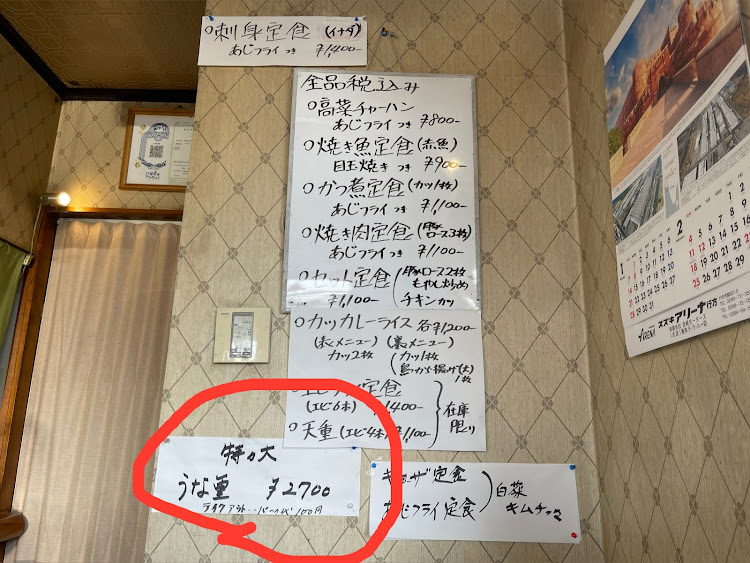 ○刺身定食 (イナダ)
あじフライつき ¥1,400-
全品税込み
○高菜チャーハン
あじフライつき ¥800-
○焼き魚定食 (赤魚)
目玉焼きつき ¥900-
○かつ煮定食 (カツ1枚)
あじフライつき ¥1,100-
○焼き肉定食 (豚ロース3枚)
あじフライつき ¥1,100-
○セット定食 豚ロース2枚
もやし炒め
¥1,100- チキンカツ
○カツカレーライス 各¥1,200
(表メニュー) (裏メニュー)
カツ2枚 カツ1枚
鳥から揚げ(大)
1枚
定食
(エビ6本) 1,400-
○天重 (エビ4本) ¥1,100-
在庫
限り
特々大
うな重 ¥2700
テイクアウト・・パック代100円
ギョーザ定食
あじフライ定食
白菜
キムチ
1
2
スズキアリーナ行方